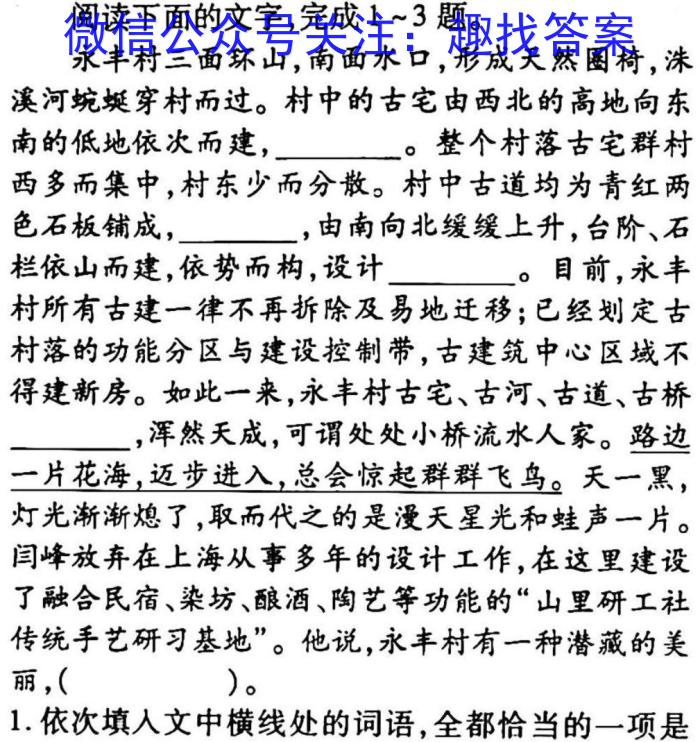 阅读下面的文字,完成1~3题。
微信公众号关注：趣找答案
永丰村三面环山,南面水口,形成天然圈椅,洙
溪河蜿蜒穿村而过。村中的古宅由西北的高地向东
南的低地依次而建,________。整个村落古宅群村
西多而集中,村东少而分散。村中古道均为青红两
色石板铺成,________,由南向北缓缓上升,台阶、石
栏依山而建,依势而构,设计________。目前,永丰
村所有古建一律不再拆除及易地迁移;已经划定古
村落的功能分区与建设控制带,古建筑中心区域不
得建新房。如此一来,永丰村古宅、古河、古道、古桥
________,浑然天成,可谓处处小桥流水人家。路边
一片花海,迈步进入,总会惊起群群飞鸟。天一黑,
灯光渐渐熄了,取而代之的是漫天星光和蛙声一片。
闫峰放弃在上海从事多年的设计工作,在这里建设
了融合民宿、染坊、酿酒、陶艺等功能的“山里研工社
传统手艺研习基地”。他说,永丰村有一种潜藏的美
丽,(　　　　)。
1.依次填入文中横线处的词语,全都恰当的一项是